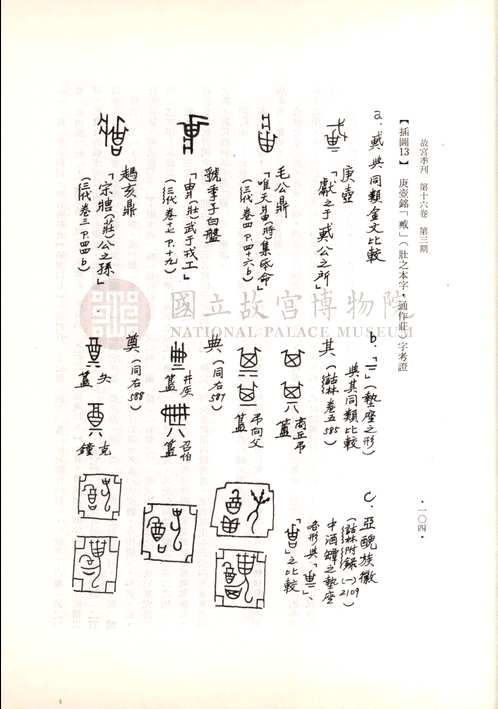 故宮季刊 第十六卷 第三期
【插圖13】 庚壺銘「䵼」(壯之本字,通作莊)字考證
a. 與同類金文比較
庚壺
「獻之于公之所」
毛公鼎
「唯天(將)集厥命」
(三代卷四 P.四十六b)
虢季子白盤
「(壯)武于戎工」
(三代卷十七 P.十九)
趞亥鼎
「宋(莊)公之孫」
(三代卷三 P.四四b)
b.「二」(墊座之形)
與其同類比較
其(詁林卷五585)
商丘弔
簠
弔向父
簋
典(同右587)
井灰
簋
召伯
簋
奠(同右588)
簋
克
鐘
c. 亞醜族徽
(詁林附錄(一)2109)
中酒罈之墊座
各形與「」、
「」之比較
·一〇四·
國立故宮博物院
NATIONAL PALACE MUSEUM